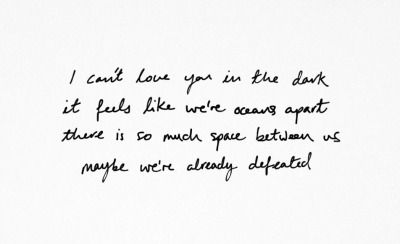 I can't love you in the dark
it feels like we're oceans apart
there is so much space between us
maybe we're already defeated